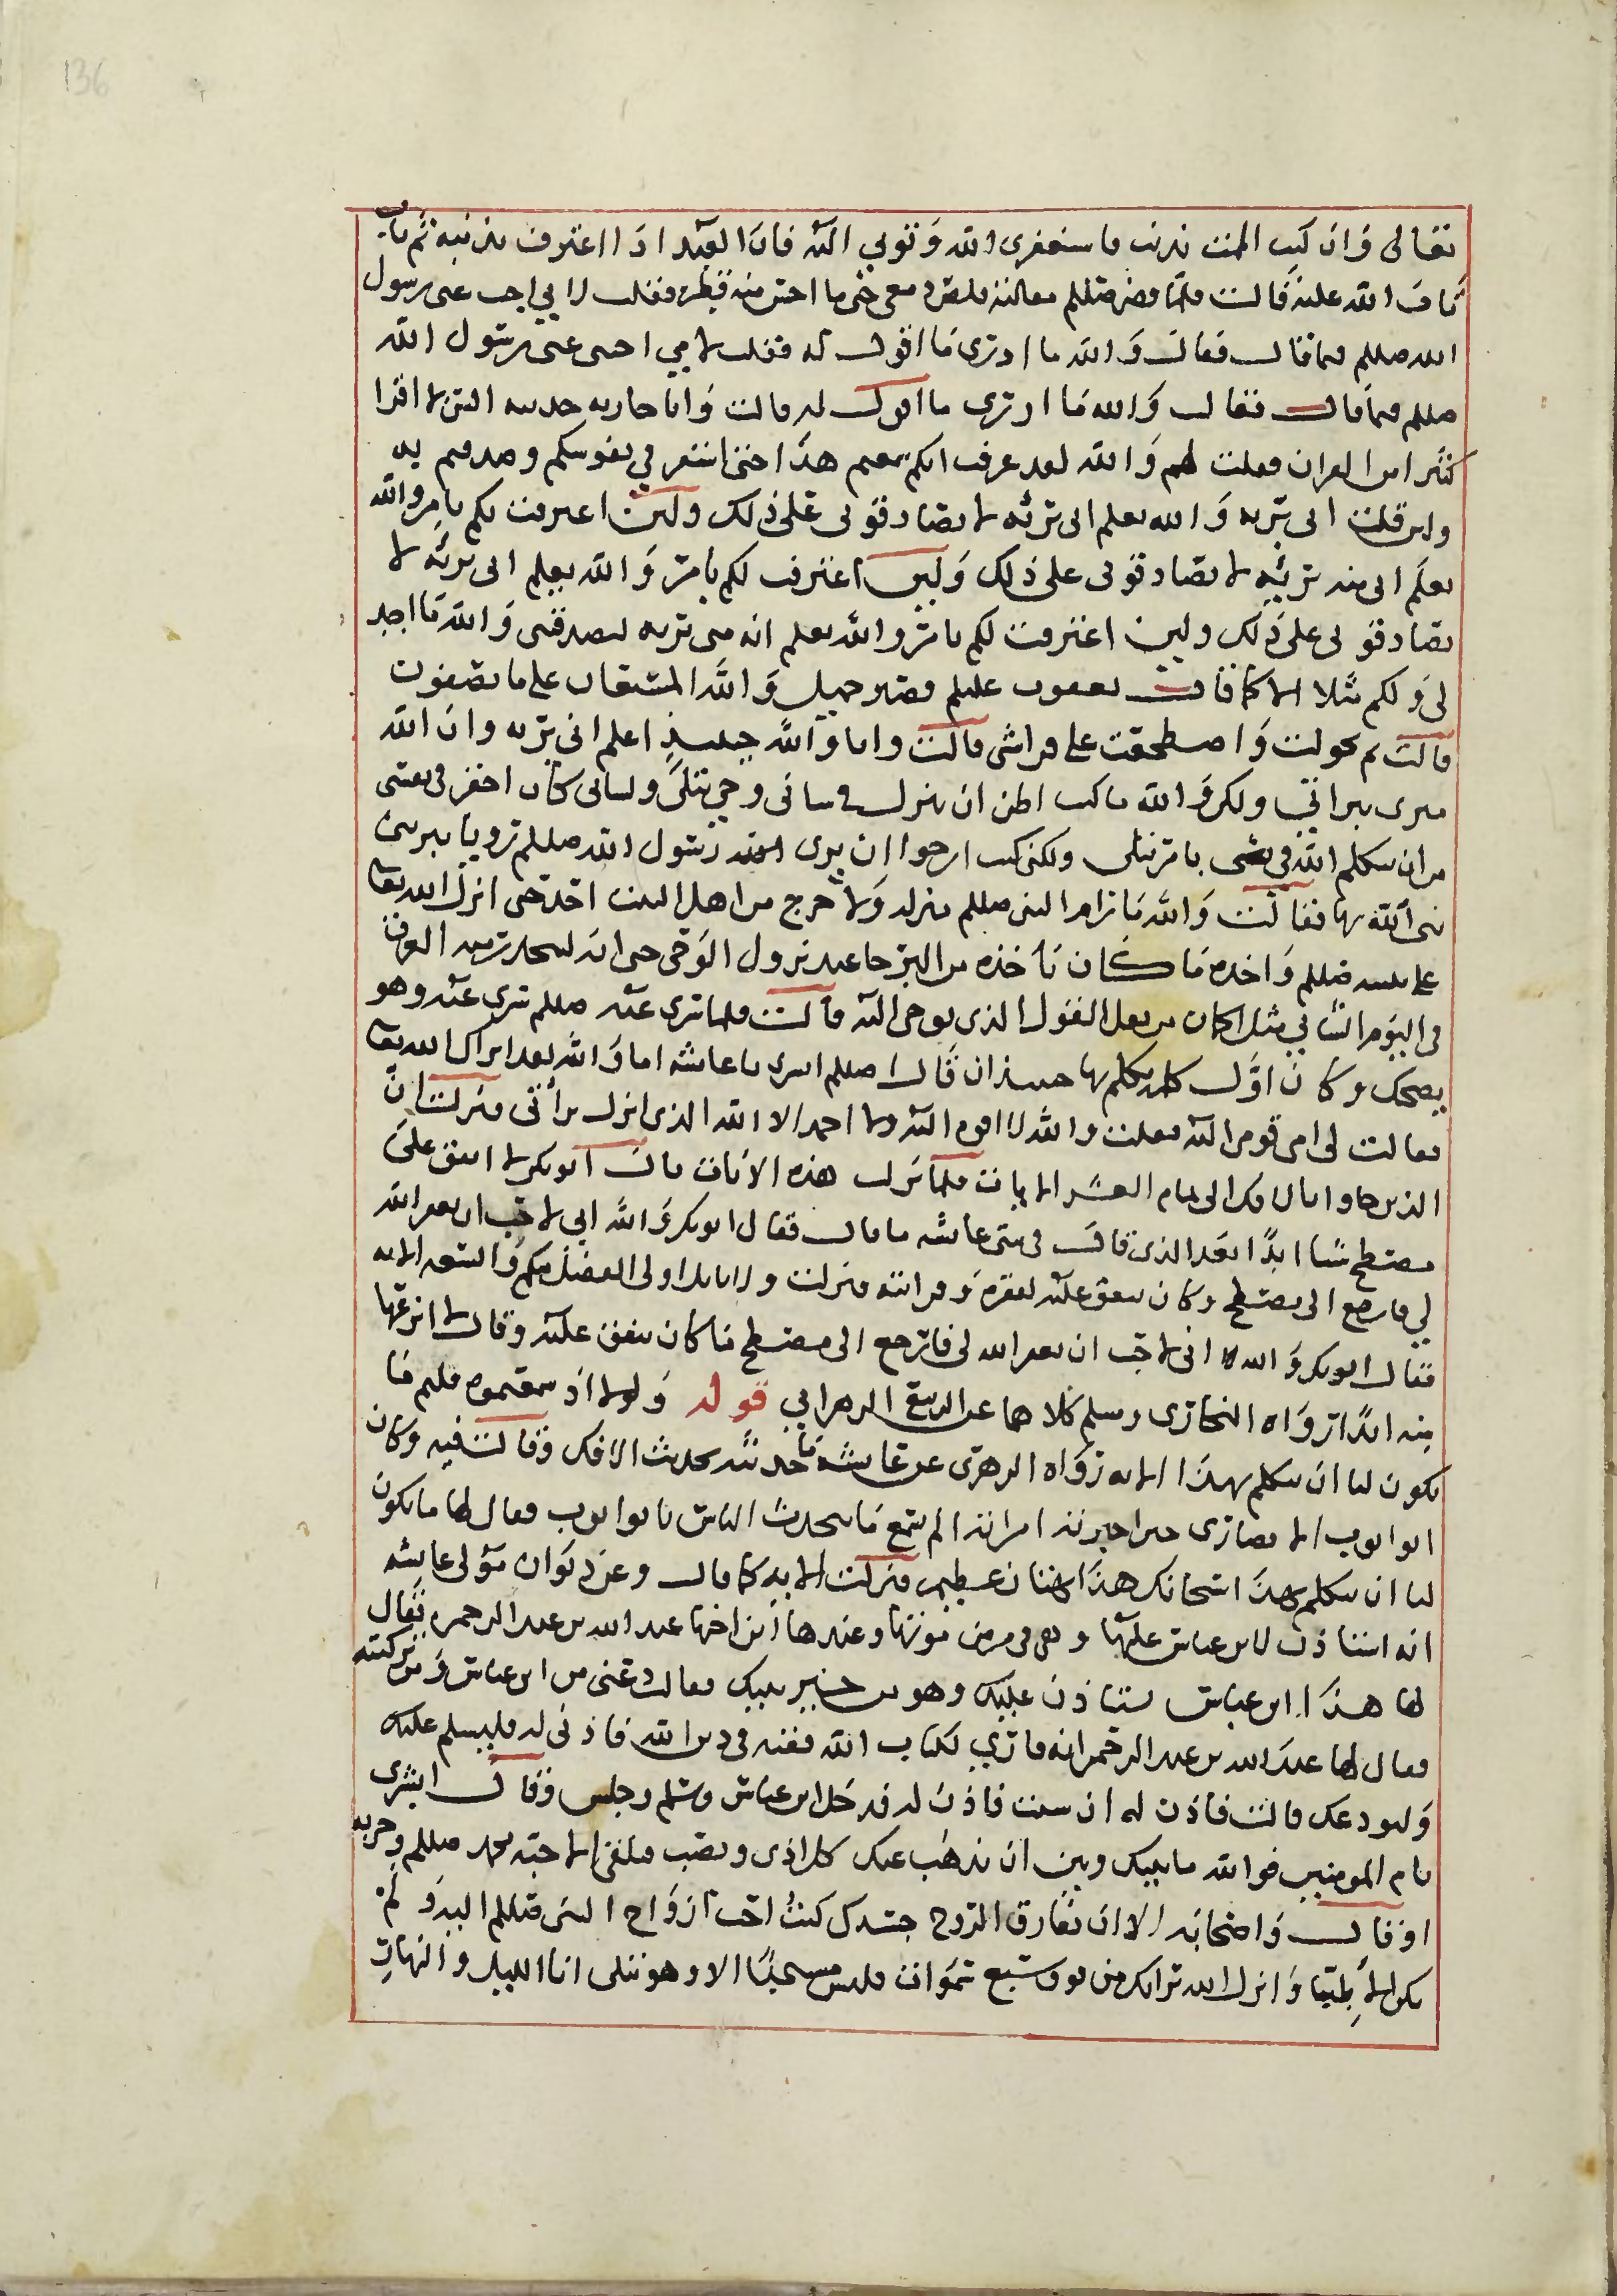 136
تعالى وان كنت الممت بذنب فاستغفرى الله وتوبي اليه فان العبد اذا اعترف بذنبه ثم تاب
تاب الله عليه قالت فلما قضى صللم مقالته قلص دمعى حتى ما احس منه قطرة فقلت لابي اجب عنى رسول
الله صللم فيما قال فقال والله ما ادرى ما اقول له فقلت لامي اجيبى عنى رسول الله
صللم فيما قال فقالت والله ما ادرى ما اقول له قالت وانا جاريه حديثه السن لا اقرا
كثيرا من القران فقلت لهم والله لقد عرفت انكم سمعتم هذا حتى استقر في نفوسكم وصدقتم به
ولئن قلت انى بريه والله يعلم انى بريئه لا تصادقونى على ذلك ولين اعترفت لكم بامر والله
يعلم انى منه بريئه لا تصادقونى على ذلك ولين اعترفت لكم بامر والله يعلم انى بريئه لا
تصادقونى على ذلك ولين اعترفت لكم بامر والله يعلم انه منى بريه لتصدقنى والله ما اجد
لى ولكم مثلا الا كما قال يعقوب عليلم فصبر جميل والله المستعان على ما تصفون
قالت ثم تحولت واضطجعت على فراشى قالت وانا والله حينيذ اعلم انى بريه وان الله
مبرى ببراتي ولكن والله ما كنت اظن ان ينزل في شانى وحى يتلى ولشانى كان احقر في نفسى
من ان يتكلم الله في بامر يتلى ولكنى كنت ارجوا ان يرى رسول الله صللم رويا يبرىنى
الله بها فقالت والله ما رام النبى صللم منزله ولا خرج من اهل البيت احد حتى انزل الله تعا
على نبيه صللم واخذه ما كان ياخذه من البرحا عند نزول الوحى حتى انه ليتحدر منه العرق
في اليوم الشاتي مثل الجمان من ثقل القول الذى يوحى اليه قالت فلما سرى عنه صللم سرى عنه وهو
يضحك وكان اول كلمه تكلم بها حينيذ ان قال صللم ابشرى يا عايشه اما والله لقد ابراك الله تعا
فقالت لى امى قومى اليه فقلت والله لا اقوم اليه ولا احمد الا الله الذى انزل براتى فنزلت ان
الذين جاوا بالافك الى تمام العشر الايات فلما نزلت هذه الايات قال ابو بكر لا انفق على
مسطح شيا ابدا بعد الذى قال في بنتى عايشه ما قال فقال ابو بكر والله انى لاحب ان يغفر الله
لي فارجع الى مسطح وكان ينفق عليه لفقره وقرابته فنزلت ولا ياتل اولى الفضل منكم والسعه الايه
فقال ابو بكر والله انى لاحب ان يغفر الله لى فارجع الى مسطح ما كان ينفق عليه وقال لا انزعها
منه ابدا رواه البخارى ومسلم كلاهما عن ابى الربيع الزهراني قوله ولولا اذ سمعتموه قلتم ما
يكون لنا ان نتكلم بهذا الايه رواه الزهرى عن عايشه ما حدثته بحديث الافك وقالت فيه وكان
ابو ايوب الانصارى حين اخبرته امراته الم تسمع ما يتحدث الناس يا ابوا ايوب فقال لها ما يكون
لنا ان نتكلم بهذا سبحانك هذا بهتان عظيم فنزلت الايه كما قال وعن ذكوان مولى عايشه
انه استاذن لابن عباس عليها وهى في مرض موتها وعندها ابن اخيها عبد الله بن عبد الرحمن فقال
لها هذا ابن عباس يستاذن عليك وهو من خير بنيك فقالت دعنى من ابن عباس ومن تزكيته
فقال لها عبد الله بن عبد الرحمن انه قاري لكتاب الله فقيه في دين الله فاذنى له فليسلم عليك
وليودعك قالت فاذن له ان شيت فاذن له فدخل ابن عباس وسلم وجلس وقال ابشرى
يا ام المومنين فوالله ما بينك وبين ان يذهب عنك كل اذى ونصب وتلقى الاحبه محمد صللم وحزبه
او قال واصحابه الا ان تفارق الروح جسدك كنت احب ازواج النبى صللم اليه ولم
يكن يحب الا طيبا وانزل الله براتك من فوق سبع سموات فليس مسجدا الا وهو يتلى انا الليل والنهار